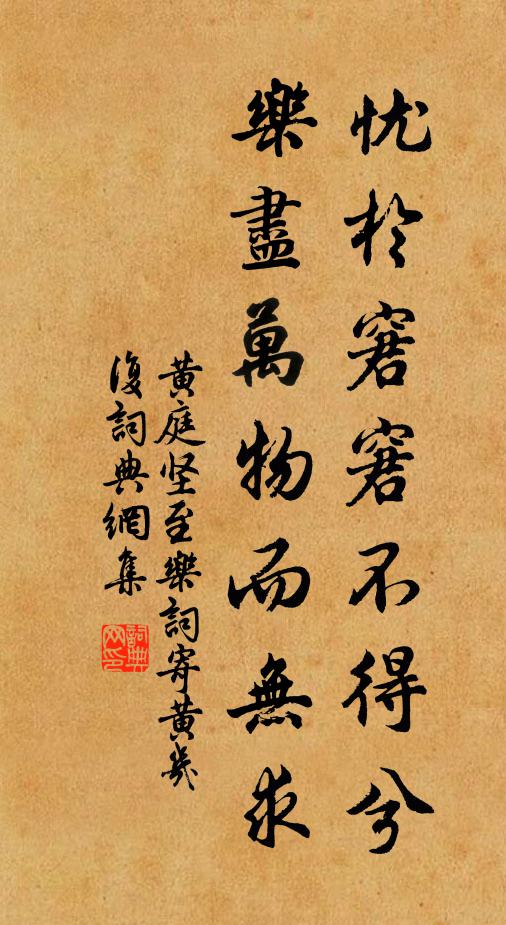 忧於窘窘不得兮
樂盡萬物而無求
黄庭坚至樂詞寄黄幾
復詞典網集
詞典
网印